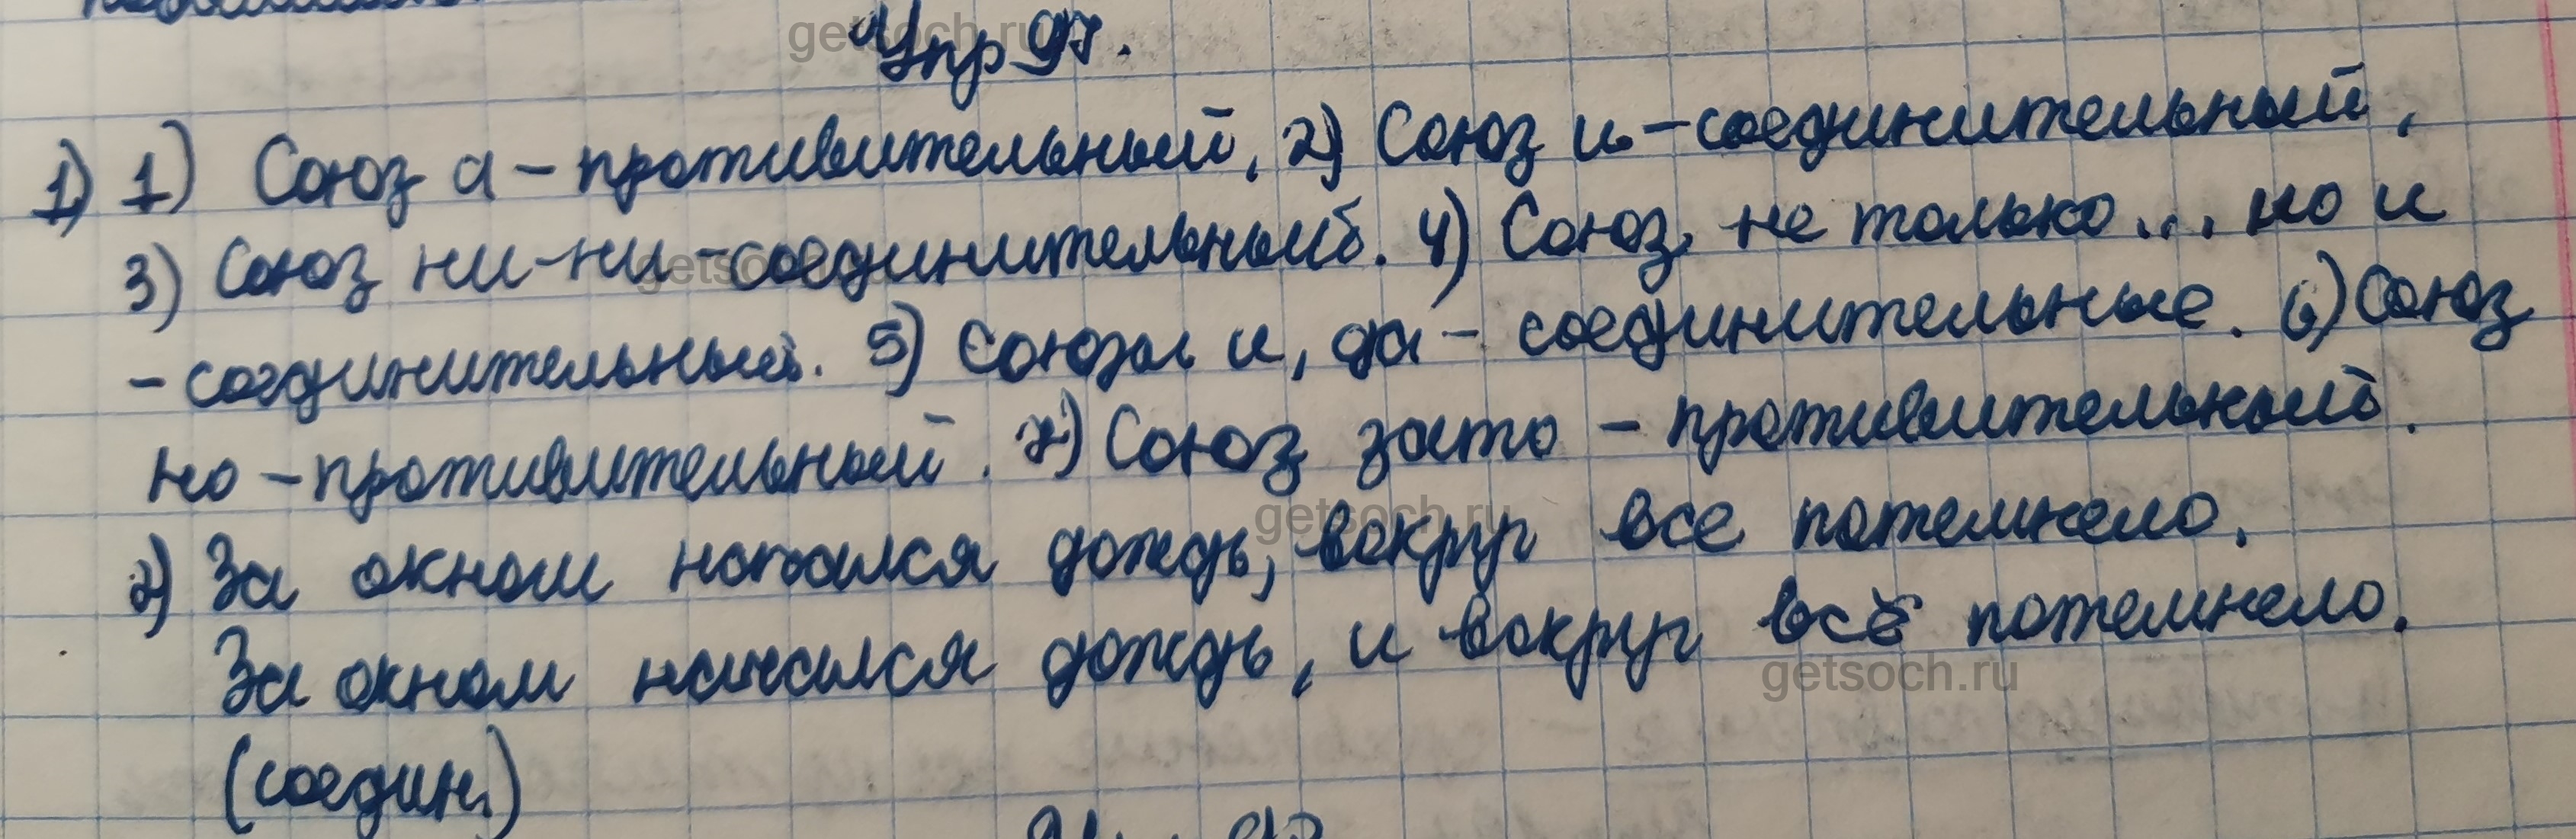 Упр 97.
1) 1) Союз а - противительный, 2) Союз и - соединительный,
3) Союз ни - ни - соединительный. 4) Союз не только... но и
- соединительный. 5) Союзы и, да - соединительные. 6) Союз
но - противительный. 7) Союз зато - противительный.
2) За окном начался дождь, вокруг все потемнело.
За окном начался дождь, и вокруг всё потемнело.
(соедин.)
getsoch.ru
getsoch.ru
getsoch.ru
getsoch.ru